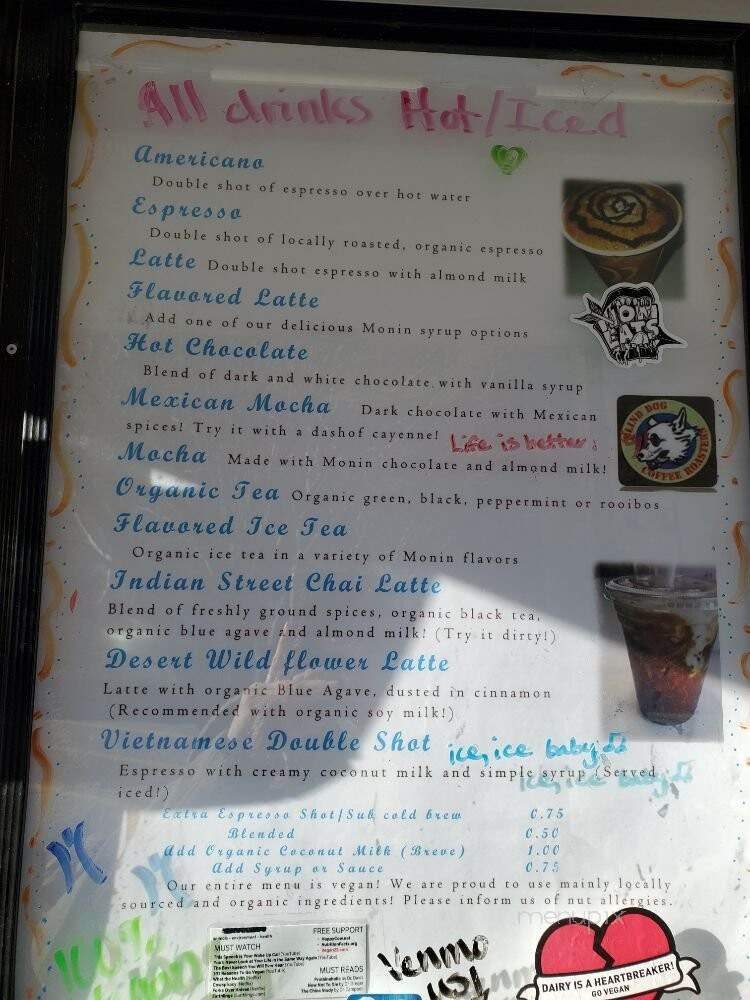 All drinks Hot/Iced
Americano
Double shot of espresso over hot water
Espresso
Double shot of locally roasted, organic espresso
Latte Double shot espresso with almond milk
Flavored Latte
Add one of our delicious Monin syrup options
Hot Chocolate
Blend of dark and white chocolate with vanilla syrup
Mexican Mocha Dark chocolate with Mexican
spices! Try it with a dashof cayenne! Life is better!
BLIND DOG
COFFEE ROASTERS
Mocha Made with Monin chocolate and almond milk!
Organic Tea Organic green, black, peppermint or rooibos
Flavored Ice Tea
Organic ice tea in a variety of Monin flavors
Indian Street Chai Latte
Blend of freshly ground spices, organic black tea,
organic blue agave and almond milk! (Try it dirty!)
Desert Wild flower Latte
Latte with organic Blue Agave, dusted in cinnamon
(Recommended with organic soy milk!)
Vietnamese Double Shot ice, ice baby
Espresso with creamy coconut milk and simple syrup (Served
iced!)
Extra Espresso Shot/Sub cold brew 0.75
Blended 0.50
Add Organic Coconut Milk (Breve) 1.00
Add Syrup or Sauce 0.75
Our entire menu is vegan! We are proud to use mainly locally
sourced and organic ingredients! Please inform us of nut allergies.
menupix
100%
MUST WATCH
FREE SUPPORT
MUST READS
Venmo
DAIRY IS A HEARTBREAKER!
GO VEGAN